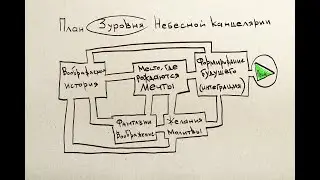 План 3уровня Небесной Канцелярии
история
Место, где
рождаются
Мечты
Формирование
Будущего
(интеграция)
Фантазии
Воображение
Желания
Молитвы